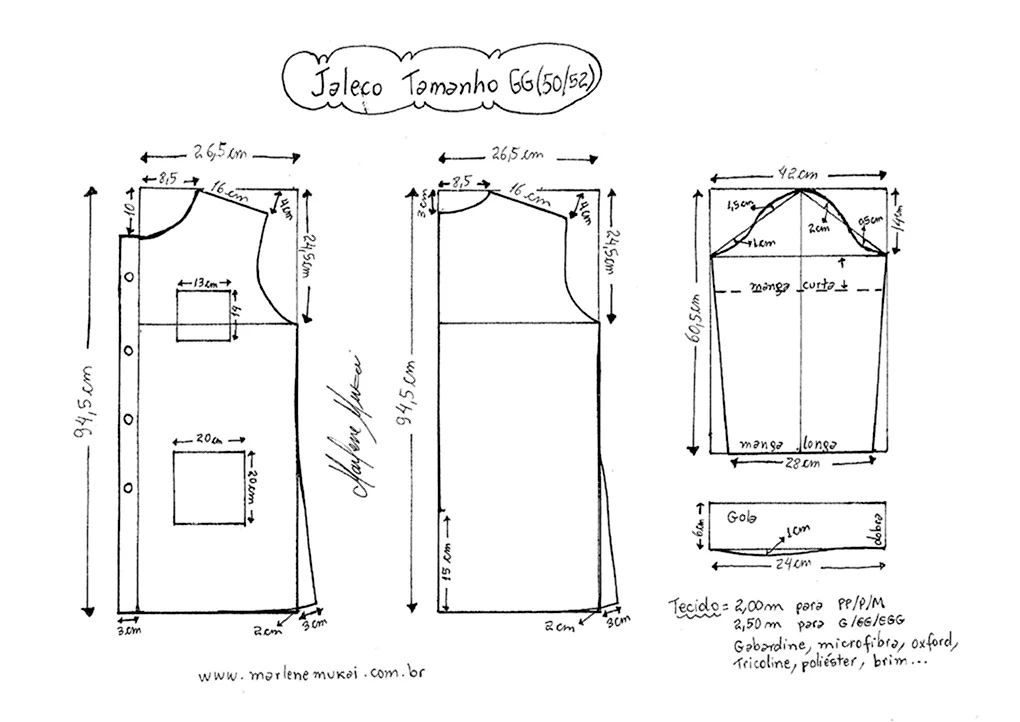 Jaleco Tamanho GG(50/52)
26,5cm
8,5
16cm
4cm
10
24,5cm
13cm
14
94,5cm
20cm
20cm
3cm
2cm
3cm
Marlene Mukai
26,5cm
8,5
16cm
4cm
3cm
24,5cm
94,5cm
15cm
2cm
3cm
42cm
1,5cm
2cm
0,5cm
1cm
14cm
manga curta
60,5cm
manga longa
28cm
6cm
Gola
dobra
1cm
24cm
Tecido= 2,00m para PP/P/M
2,50m para G/GG/EGG
Gabardine, microfibra, oxford,
Tricoline, poliéster, brim...
www.marlenemukai.com.br